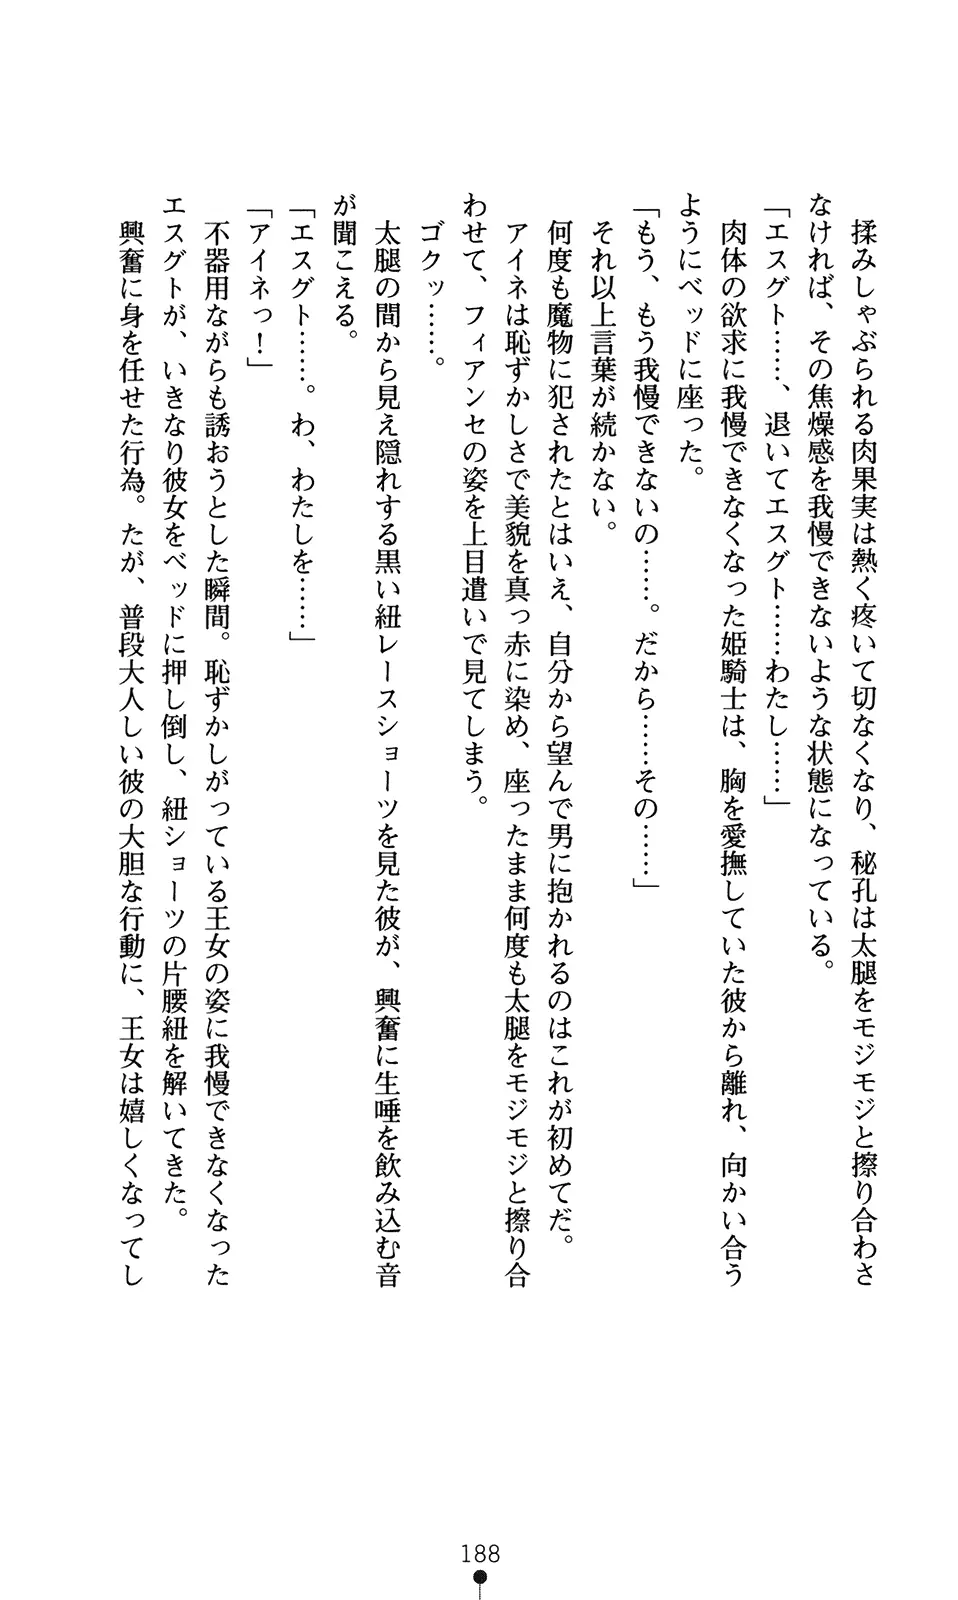 揉みしゃぶられる肉果実は熱く疼いて切なくなり、秘孔は太腿をモジモジと擦り合わさ
なければ、その焦燥感を我慢できないような状態になっている。
「エスグト……、退いてエスグト……わたし……」
肉体の欲求に我慢できなくなった姫騎士は、胸を愛撫していた彼から離れ、向かい合う
ようにベッドに座った。
「もう、もう我慢できないの……。だから……その……」
それ以上言葉が続かない。
何度も魔物に犯されたとはいえ、自分から望んで男に抱かれるのはこれが初めてだ。
アイネは恥ずかしさで美貌を真っ赤に染め、座ったまま何度も太腿をモジモジと擦り合
わせて、フィアンセの姿を上目遣いで見てしまう。
ゴクッ……。
太腿の間から見え隠れする黒い紐レースショーツを見た彼が、興奮に生唾を飲み込む音
が聞こえる。
「エスグト……。わ、わたしを……」
「アイネっ！」
不器用ながらも誘おうとした瞬間。恥ずかしがっている王女の姿に我慢できなくなった
エスグトが、いきなり彼女をベッドに押し倒し、紐ショーツの片腰紐を解いてきた。
興奮に身を任せた行為。たが、普段大人しい彼の大胆な行動に、王女は嬉しくなってし
188